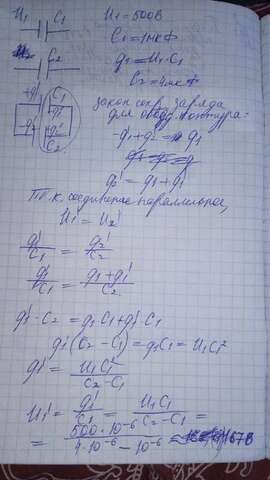 U₁ C₁ U₁ = 500В
C₁ = 1мкФ
C₂ q₁ = U₁·C₁
C₂ = 4мкФ
+q₁' C₁ закон сохр. заряда
-q₁' для контура:
q₂' -q₁' + q₂' = q₁
C₂
q₂' = q₁ + q₁'
Т.к. соединение параллельное,
U₁' = U₂'
q₁'/C₁ = q₂'/C₂
q₁'/C₁ = (q₁ + q₁')/C₂
q₁'·C₂ = q₁C₁ + q₁'C₁
q₁'(C₂ - C₁) = q₁C₁ = U₁C₁²
q₁' = U₁C₁²/(C₂ - C₁)
U₁' = q₁'/C₁ = U₁C₁/(C₂ - C₁) =
= 500·10⁻⁶/(4·10⁻⁶ - 10⁻⁶) ≈ 167В